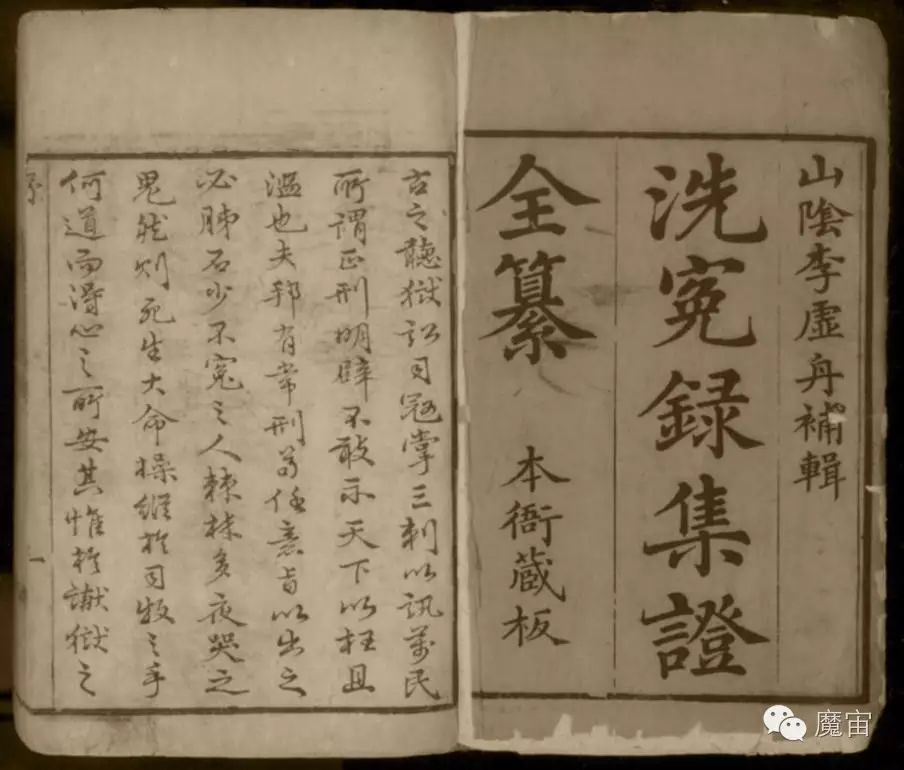 山陰李虛舟補輯
洗冤録集證
全纂
本衙藏板
古之聽獄訟司冦掌三刺以訊萬民
所謂正刑明辟不敢示天下以枉且
濫也夫邦有常刑若任意旨以出之
必肺石少不寃之人棘林多夜哭之
鬼然則死生大命操縱於司牧之手
何道而淂心之所安其惟於讞獄之
序
一
魔宙